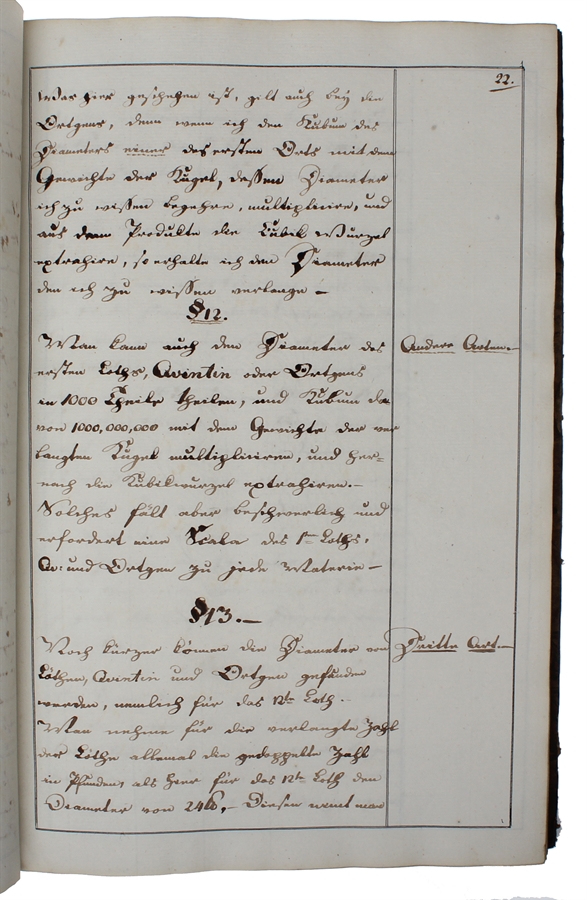 22.
Was hier geschehen ist, gilt auch bey den
Ortgens, denn wenn ich den Kubum des
Diameters eines des ersten Orts mit dem
Gewichte der Kugel, dessen Diameter
ich zu wissen begehre, multiplicire, und
aus dem Produkte die Cubik Wurzel
extrahire, so erhalte ich den Diameter
den ich zu wissen verlange –
§12.
Man kann auch den Diameter des
Andere Arten.
ersten Loths, Qvintin oder Ortgens
in 1000 Theile theilen, und Kubum den
von 1000,000,000 mit dem Gewichte der ver
langten Kugel multipliciren, und her=
nach die Kubikwurzel extrahiren.–
Solches fält aber beschwerlich und
erfordert eine Scala des 1ten Loths,
Qv: und Ortgen zu jede Materie –
§13.–
Noch kürzer können die Diameter von
Dritte Art.–
Löthen, Qvintin und Ortgen gefunden
werden, nemlich für das 12te Loth.
Man nehme für die verlangte Zahl
der Löthe allemal die gedoppelte Zahl
in Pfunden, als hier für das 12te Loth den
Diameter von 24 ℔,– Diesen nimt man